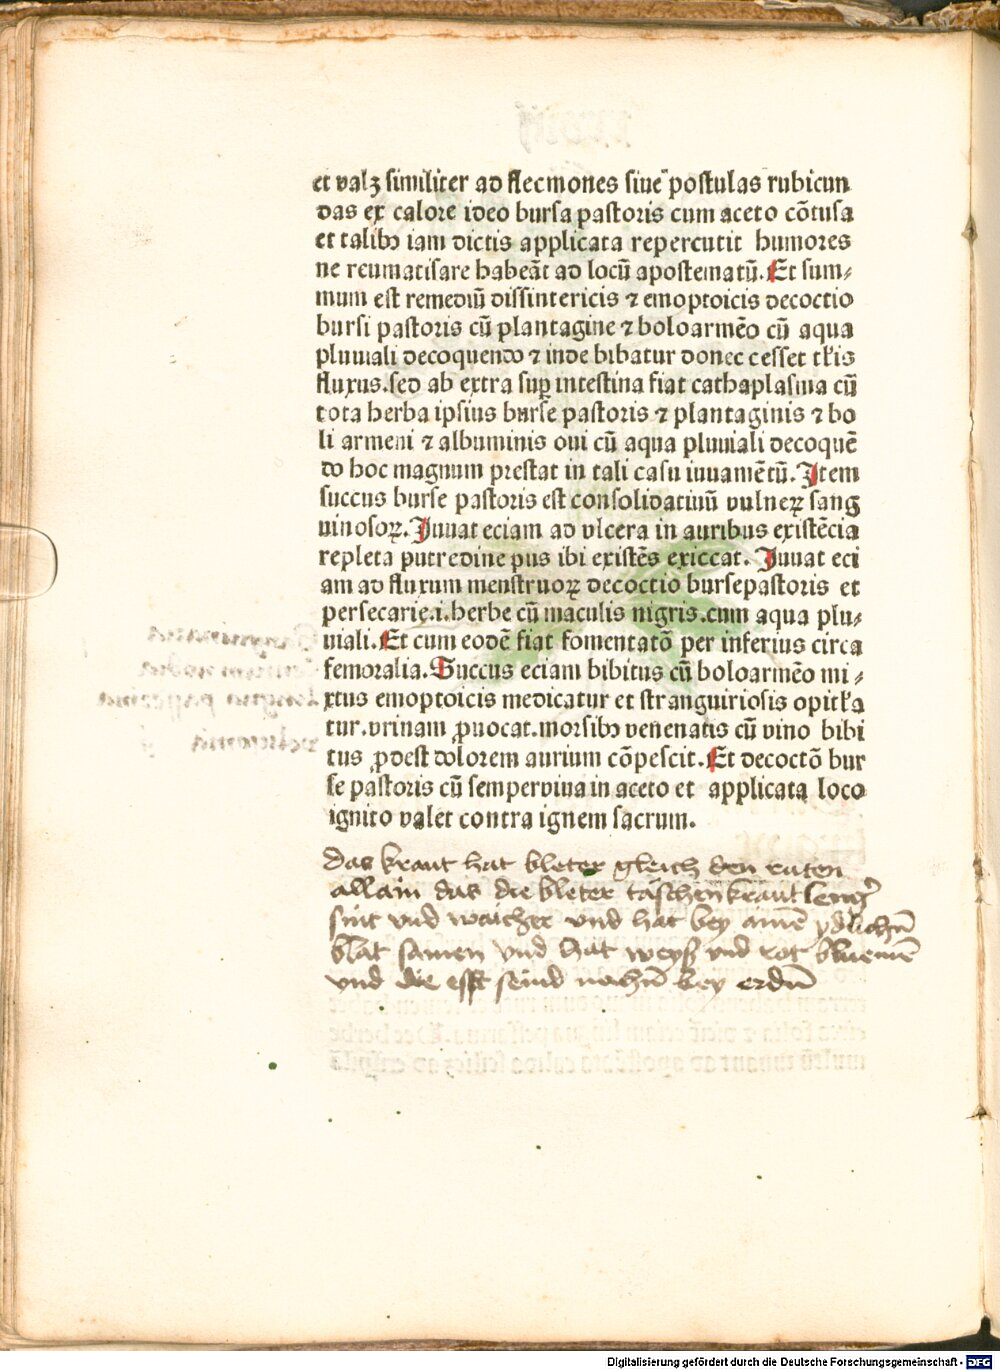 et valꝫ similiter ad flecmones siue postulas rubicun
das ex calore ideo bursa pastoris cum aceto cõtusa
et talibꝫ iam dictis applicata repercutit humores
ne reumatisare habeãt ad locũ apostematũ. Et sum⸗
mum est remediũ dissintericis ⁊ emoptoicis decoctio
bursi pastoris cũ plantagine ⁊ boloarmẽo cũ aqua
pluuiali decoquendo ⁊ inde bibatur donec cesset tł̃is
fluxus. sed ab extra suꝑ intestina fiat cathaplasma cũ
tota herba ipsius burse pastoris ⁊ plantaginis ⁊ bo
li armeni ⁊ albuminis oui cũ aqua pluuiali decoquẽ
do hoc magnum prestat in tali casu iuuamẽtũ. Item
succus burse pastoris est consolidatiuũ vulneꝝ sang
uinosoꝝ. Juuat eciam ad vlcera in auribus existẽcia
repleta putredine pus ibi existẽs exiccat. Juuat eci
am ad fluxum menstruoꝝ decoctio bursepastoris et
persecarie .i. herbe cũ maculis nigris. cum aqua plu⸗
uiali. Et cum eodẽ fiat fomentatõ per inferius circa
femoralia. Succus eciam bibitus cũ boloarmẽo mi⸗
xtus emoptoicis medicatur et stranguiriosis opitł̃a
tur. vrinam ꝓuocat. morsibꝫ venenatis cũ vino bibi
tus ꝓdest dolorem aurium cõpescit. Et decoctõ bur
se pastoris cũ semperuiua in aceto et applicata loco
ignito valet contra ignem sacrum.
das kraut hat bleter gleich den ruten
allain das die bleter täschenkraut leng̃
sint vnd waicher vnd hat bey aimẽ ydlichñ
blat samen vnd hat weyß vnd rot bluemẽ
vnd die esst seind nachñ bey erdñ
Digitalisierung gefördert durch die Deutsche Forschungsgemeinschaft - DFG